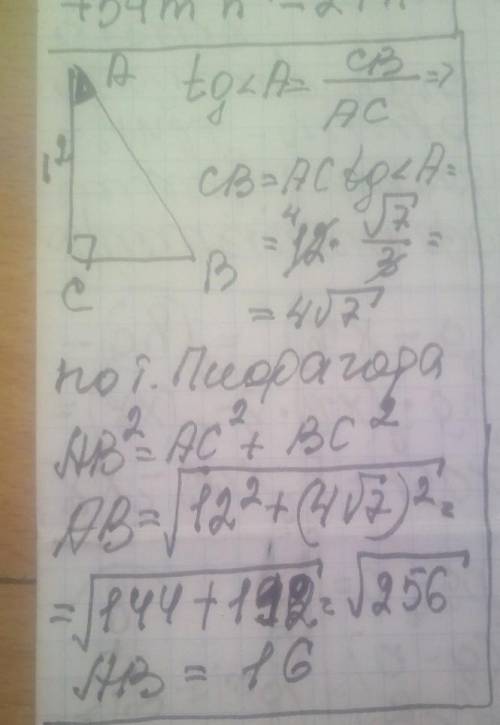 +54m n - 27n
A
tg<A= CB/AC =>
12
CB=AC tg<A=
= 12 4 · √7/3 =
C B
= 4√7
по т. Пиорагора
AB²=AC²+ BC²
AB=√12²+(4√7)²=
=√144+112=√256
AB = 16